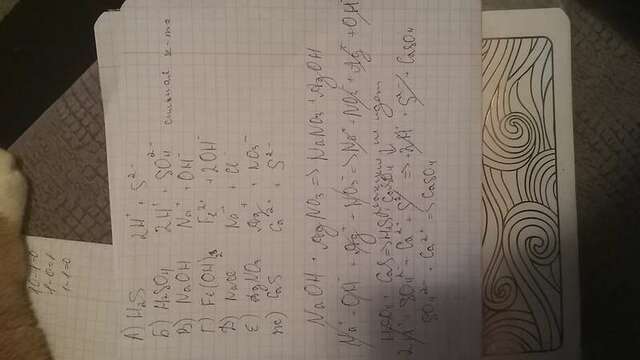 1·0-1=0
1-0=1
1-1=0
А) H₂S 2H⁺ + S²⁻
Б) H₂SO₄ 2H⁺ + SO₄²⁻ сильная к-та
В) NaOH Na⁺ + OH⁻
Г) Fe(OH)₂ Fe²⁺ + 2OH⁻
Д) NaCl Na⁺ + Cl⁻
Е) AgNO₃ Ag⁺ + NO₃⁻
Ж) CaS Ca²⁺ + S²⁻
NaOH + AgNO₃ => NaNO₃ + AgOH
Na⁺ + OH⁻ + Ag⁺ + NO₃⁻ => Na⁺ + NO₃⁻ + Ag⁺ + OH⁻
реакция не идет
H₂SO₄ + CaS => H₂S + CaSO₄ ↓
2H⁺ + SO₄²⁻ + Ca²⁺ + S²⁻ => 2H⁺ + S²⁻ + CaSO₄
SO₄²⁻ + Ca²⁺ => CaSO₄